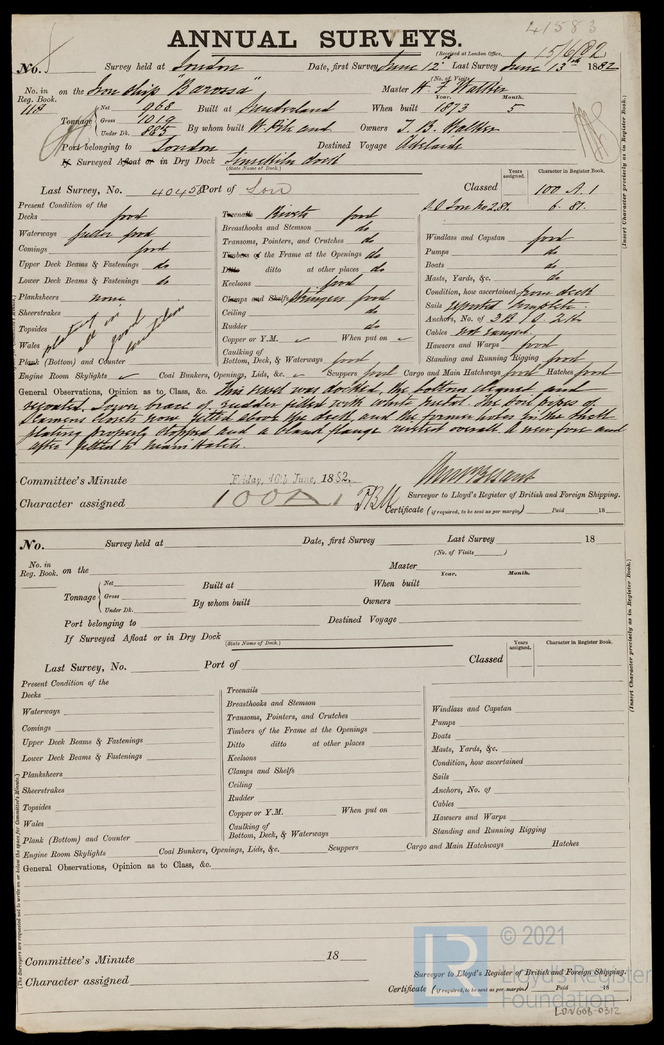 41583
ANNUAL SURVEYS.
(Received at London Office, 15/6/82
No. Survey held at London Date, first Survey June 12th Last Survey June 13th 1882
(No. of Visits
No. in Reg. Book. on the Iron Ship "Barossa" Master
Year. Month.
Tonnage Net 968 Built at Sunderland When built 1873 5
Gross 1019
Under Dk. 885 By whom built W. Pile and Owners T. B. Walker
Port belonging to London Destined Voyage Adelaide
If Surveyed Afloat or in Dry Dock Limekiln dock
(State Name of Dock.)
Last Survey, No. 40458 Port of Lon Classed
Years assigned. Character in Register Book.
100 A.1
6. 81.
(Insert Character precisely as in Register Book.)
Present Condition of the
Decks good
Waterways gutter good
Comings good
Upper Deck Beams & Fastenings do
Lower Deck Beams & Fastenings do
Planksheers none
Sheerstrakes
Topsides
Wales
Plank (Bottom) and Counter
plating in good condition
Treenails Rivets good
Breasthooks and Stemson do
Transoms, Pointers, and Crutches do
Timbers of the Frame at the Openings do
Ditto ditto at other places do
Keelsons good
Clamps and Shelfs Stringers good
Ceiling do
Rudder do
Copper or Y.M. When put on
Caulking of Bottom, Deck, & Waterways good
Windlass and Capstan good
Pumps do
Boats do
Masts, Yards, &c. do
Condition, how ascertained from deck
Sails reported complete
Anchors, No. of 3 B.
Cables not ranged
Hawsers and Warps good
Standing and Running Rigging good
Engine Room Skylights Coal Bunkers, Openings, Lids, &c. Scuppers good Cargo and Main Hatchways good Hatches good
General Observations, Opinion as to Class, &c. This vessel was docked, the bottom cleaned and
recoated. Lower brace of rudder fitted with white metal. The soil pipes of
closets now fitted above the deck and the former holes in the shell
plating properly stopped and a blank flange riveted overall. A new fore and
after fitted to main hatch.
Committee's Minute Friday, 16th June, 1882.
Character assigned 100A1
Surveyor to Lloyd's Register of British and Foreign Shipping.
Certificate (if required, to be sent as per margin) Paid 18
No. Survey held at Date, first Survey Last Survey 18
(No. of Visits )
No. in Reg. Book. on the Master
Year. Month.
Tonnage Net Built at When built
Gross
Under Dk. By whom built Owners
Port belonging to Destined Voyage
If Surveyed Afloat or in Dry Dock
(State Name of Dock.)
Last Survey, No. Port of Classed
Years assigned. Character in Register Book.
(Insert Character precisely as in Register Book.)
Present Condition of the
Decks
Waterways
Comings
Upper Deck Beams & Fastenings
Lower Deck Beams & Fastenings
Planksheers
Sheerstrakes
Topsides
Wales
Plank (Bottom) and Counter
Treenails
Breasthooks and Stemson
Transoms, Pointers, and Crutches
Timbers of the Frame at the Openings
Ditto ditto at other places
Keelsons
Clamps and Shelfs
Ceiling
Rudder
Copper or Y.M. When put on
Caulking of Bottom, Deck, & Waterways
Windlass and Capstan
Pumps
Boats
Masts, Yards, &c.
Condition, how ascertained
Sails
Anchors, No. of
Cables
Hawsers and Warps
Standing and Running Rigging
Engine Room Skylights Coal Bunkers, Openings, Lids, &c. Scuppers Cargo and Main Hatchways Hatches
General Observations, Opinion as to Class, &c.
(The Surveyors are requested not to write on or below the space for Committee's Minute.)
Committee's Minute 18
Character assigned
Surveyor to Lloyd's Register of British and Foreign Shipping.
Certificate (if required, to be sent as per margin) Paid 18
LR © 2021
Lloyd's Register
Foundation
LON608-0312